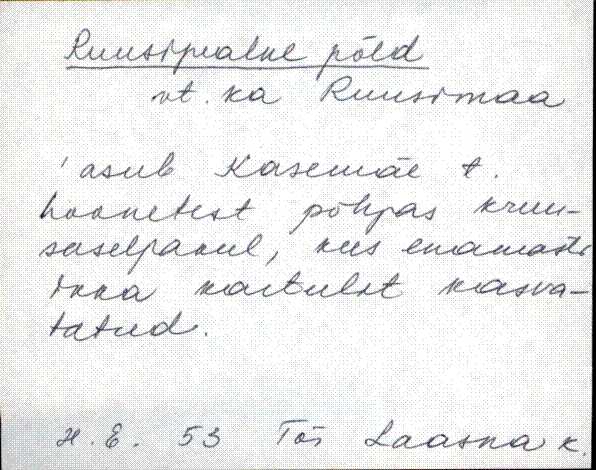 Ruusipealne põld
vt. ka Ruusimaa
asub Kasemäe t.
hoonetest põhjas kruu-
saseljakul, kus enamasti
ikka kartulit kasva-
tatud.
H. E. 53 Tõs Laasna k.